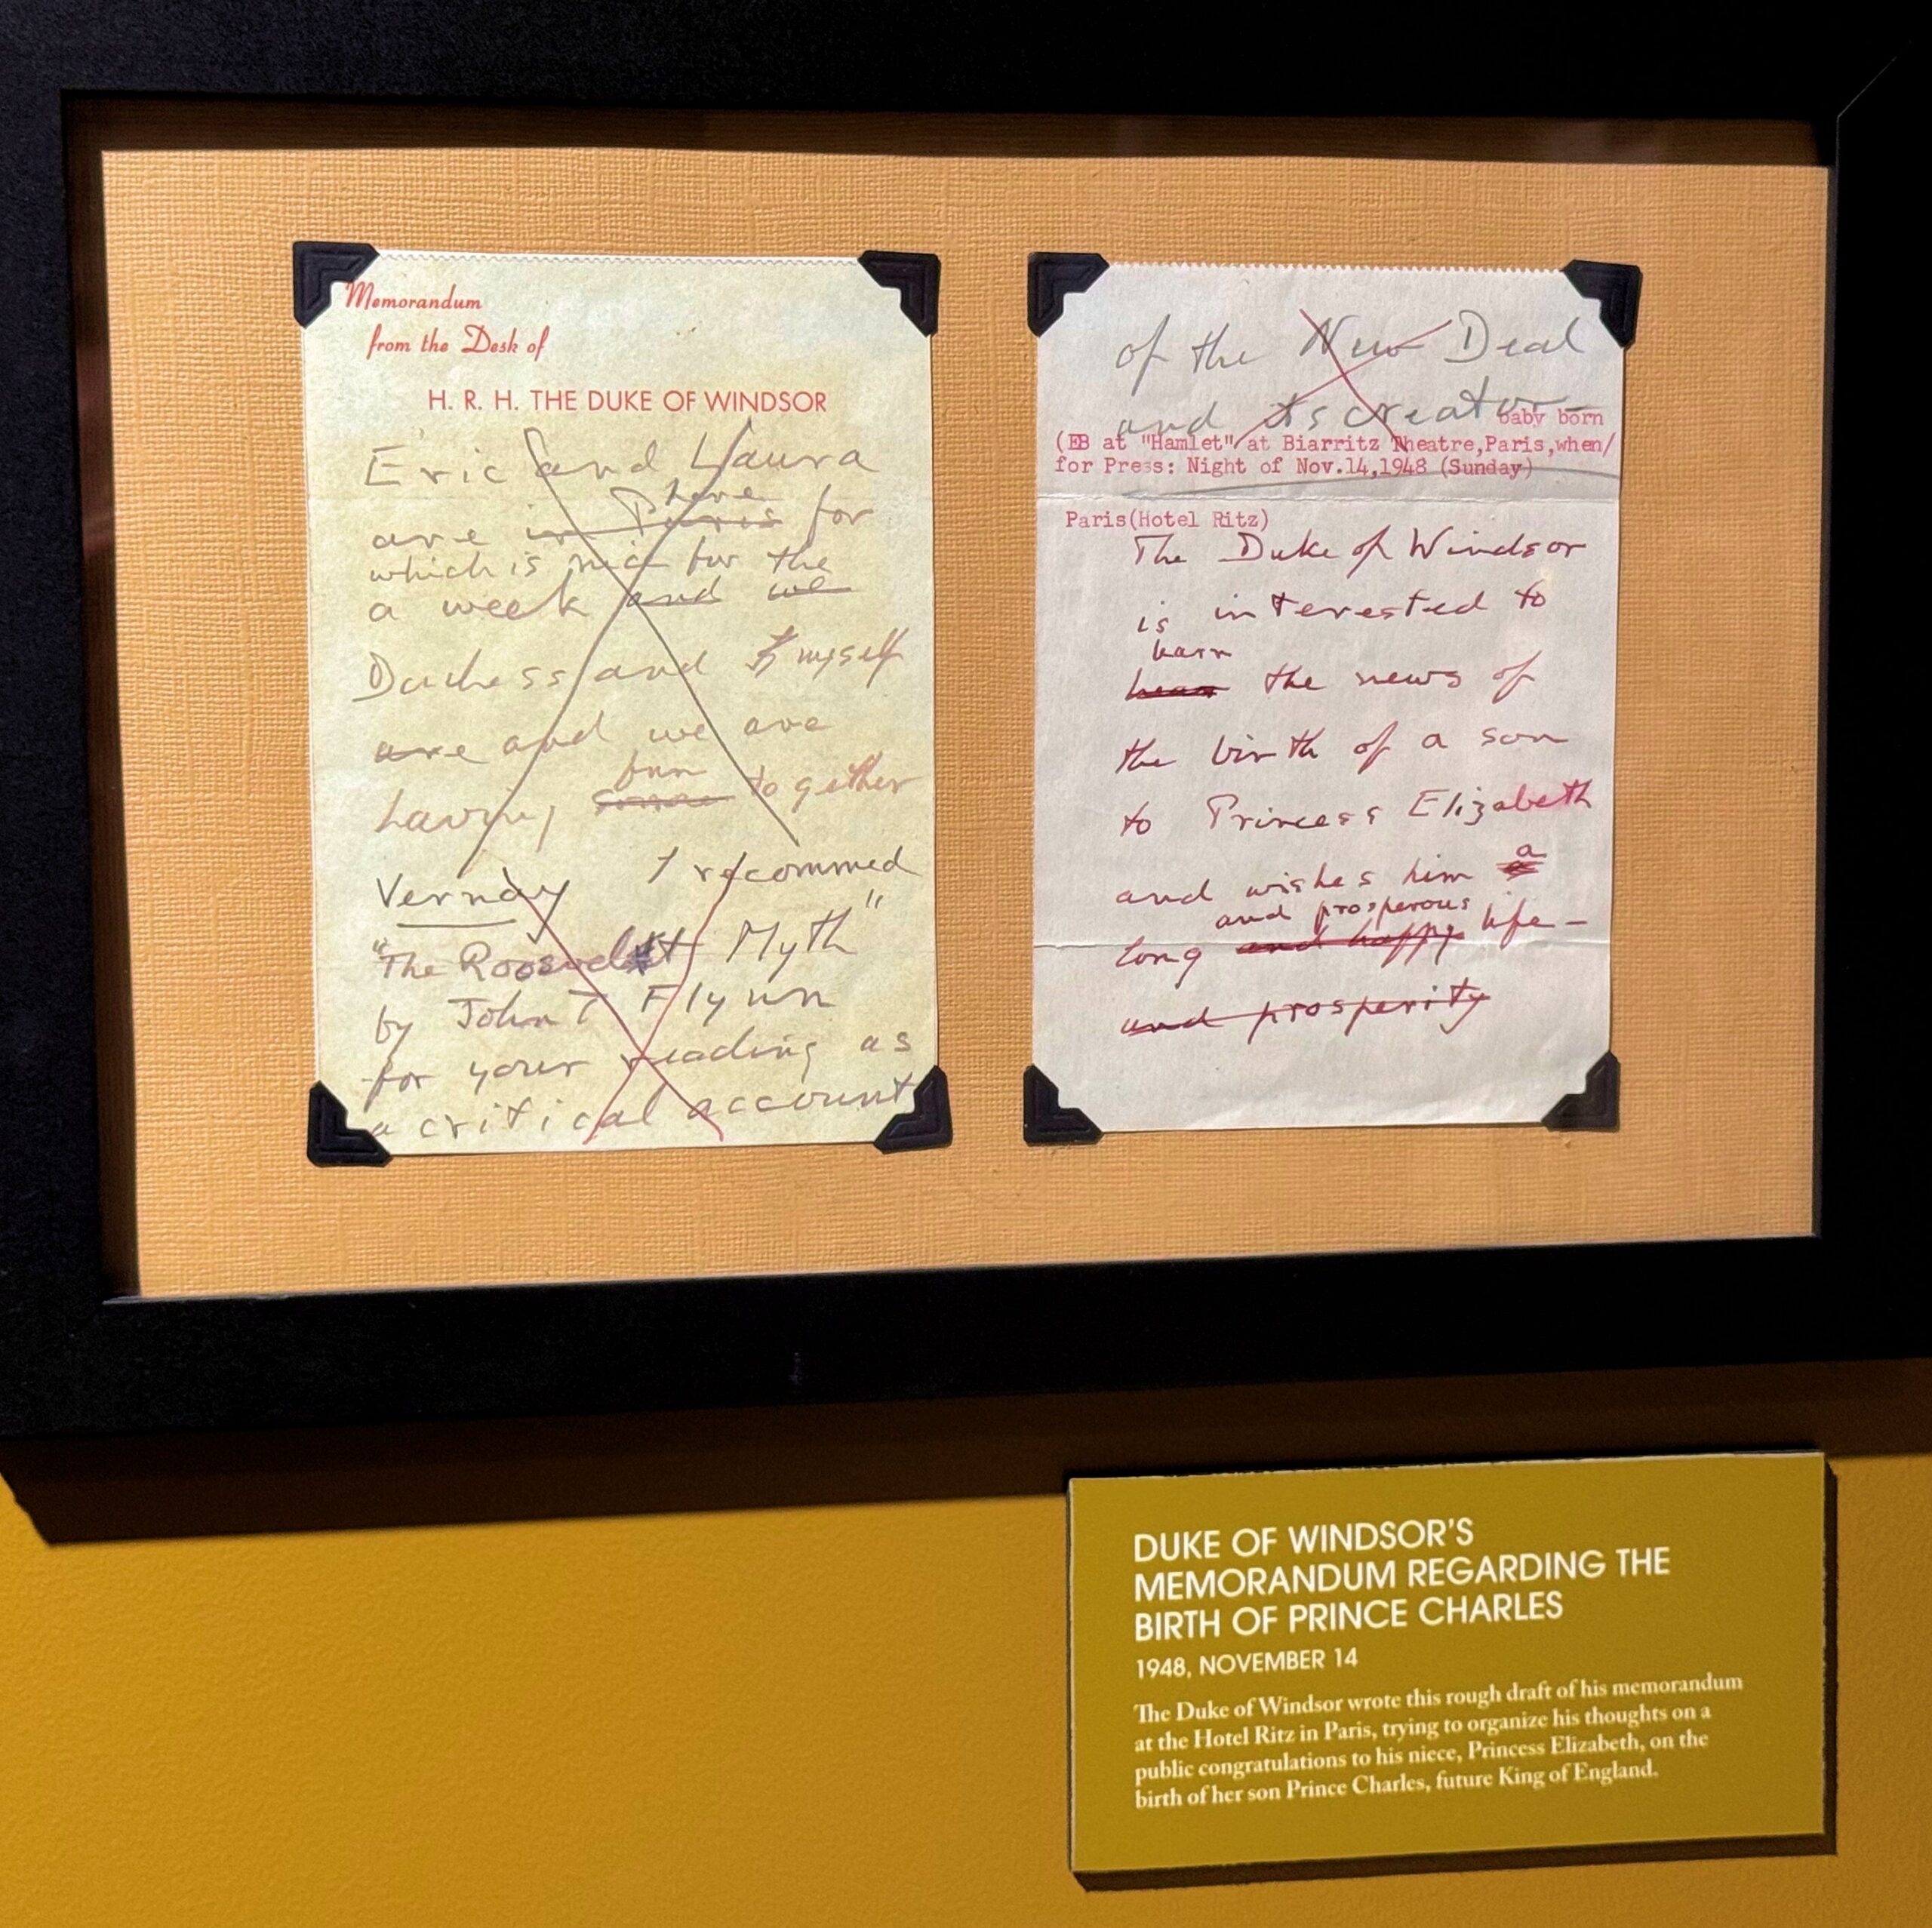 Memorandum
from the Desk of
H. R. H. THE DUKE OF WINDSOR
Eric and Laura
here
are in Paris for
which is nice for the
a week and we
Duchess and myself
are and we are
fun
having together
Vernay I recommed
"The Roosevelt Myth"
by John T Flynn
for your reading as
a critical account
of the New Deal
and its creator
baby born
(EB at "Hamlet" at Biarritz Theatre,Paris,when/
for Press: Night of Nov.14,1948 (Sunday)
Paris(Hotel Ritz)
The Duke of Windsor
is interested to
learn
hear the news of
the birth of a son
to Princess Elizabeth
a
and wishes him
and prosperous
long and happy life -
and prosperity
DUKE OF WINDSOR'S
MEMORANDUM REGARDING THE
BIRTH OF PRINCE CHARLES
1948, NOVEMBER 14
The Duke of Windsor wrote this rough draft of his memorandum
at the Hotel Ritz in Paris, trying to organize his thoughts on a
public congratulations to his niece, Princess Elizabeth, on the
birth of her son Prince Charles, future King of England.